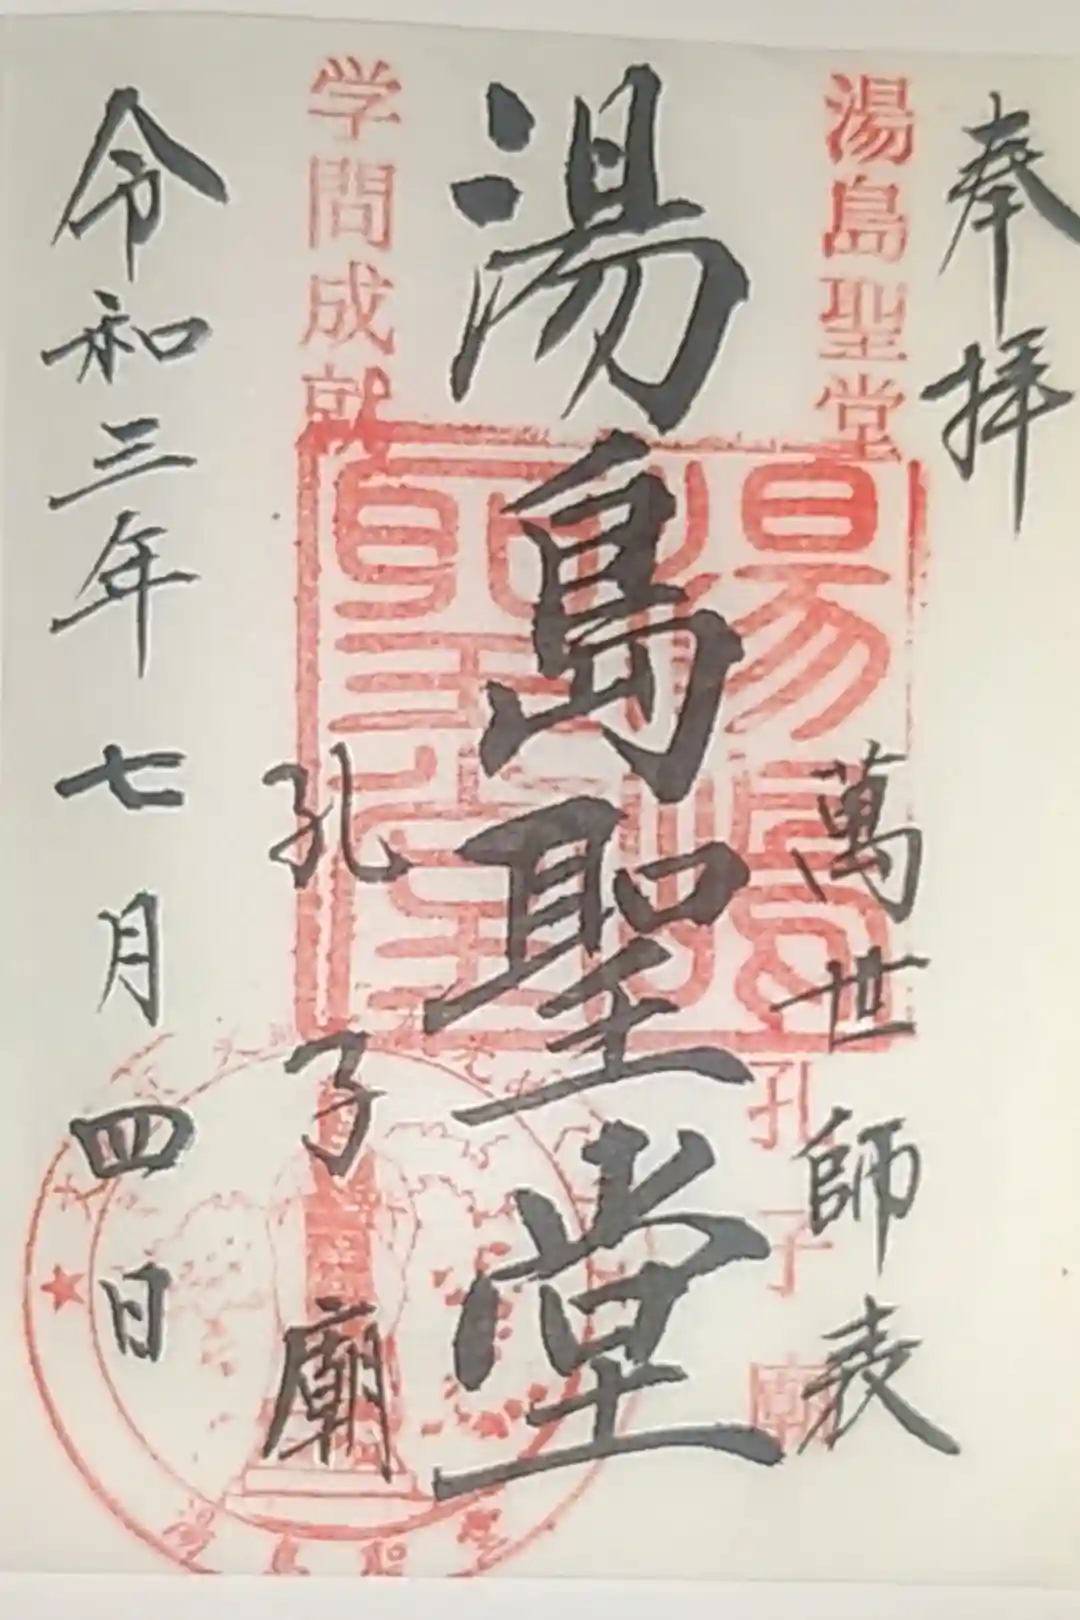 奉拝
湯島聖堂
萬世師表
孔子廟
湯島聖堂
学問成就
孔子廟
令和三年七月四日
湯島聖堂